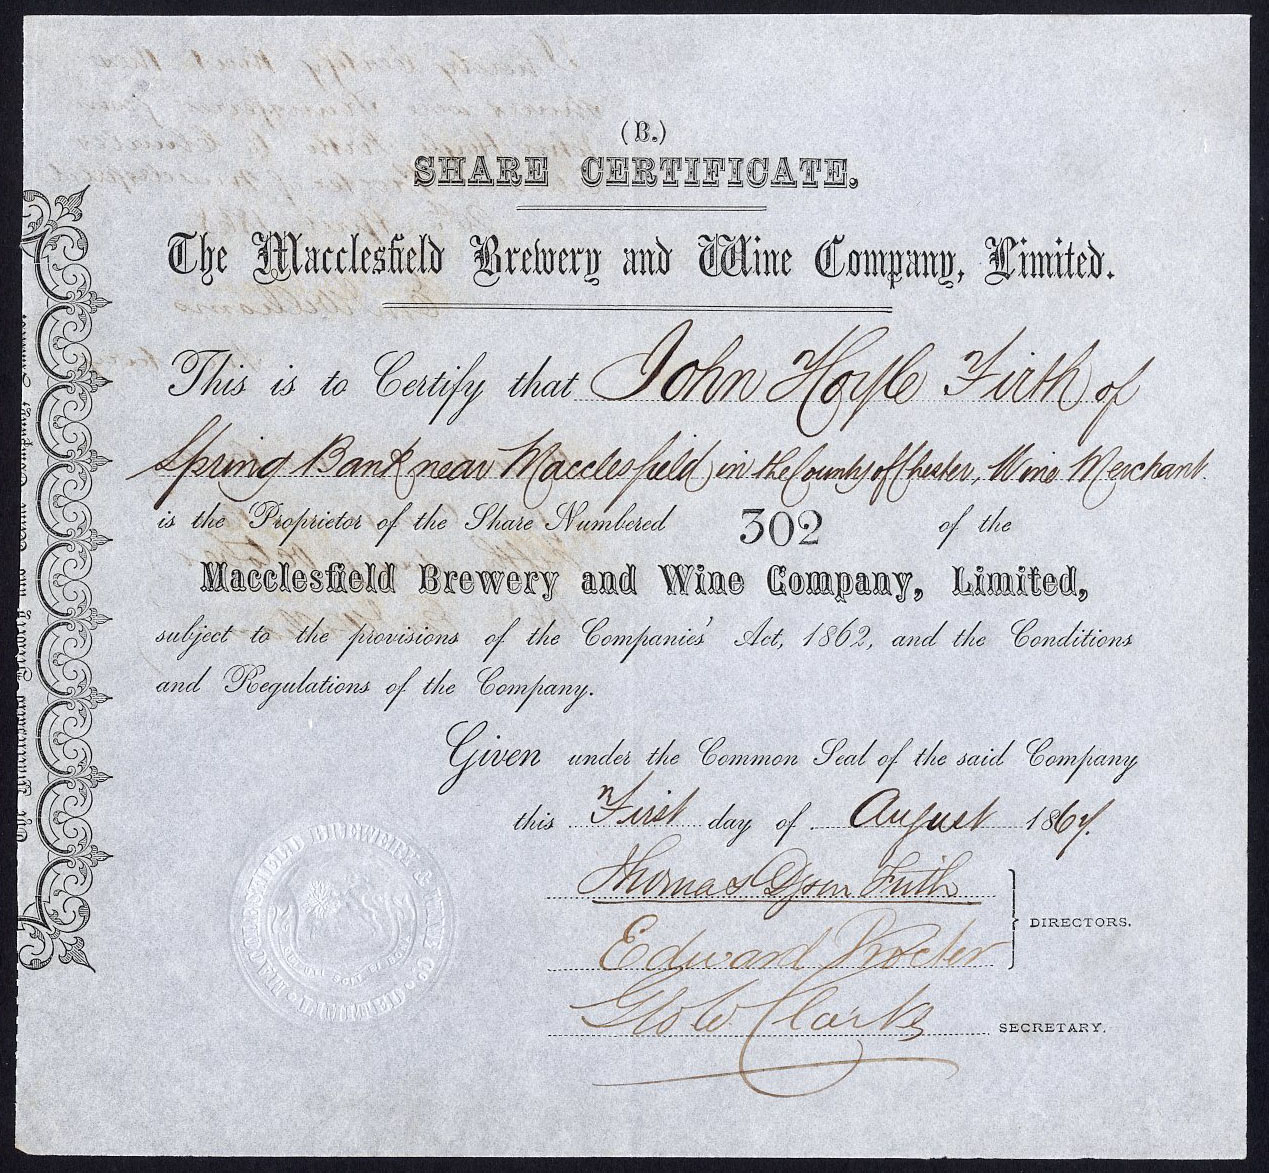 (B.)
SHARE CERTIFICATE.
The Macclesfield Brewery and Wine Company, Limited.
This is to Certify that John Hoyle Firth of
Spring Bank near Macclesfield in the County of Chester, Wine Merchant.
is the Proprietor of the Share Numbered 302 of the
Macclesfield Brewery and Wine Company, Limited,
subject to the provisions of the Companies' Act, 1862, and the Conditions
and Regulations of the Company.
Given under the Common Seal of the said Company
this First day of August 1867.
Thomas Dyson Firth
Edward Procter
DIRECTORS.
Geo W Clarke
SECRETARY.
MACCLESFIELD BREWERY & WINE CO LIMITED
The Macclesfield Brewery and Wine Company, Limited